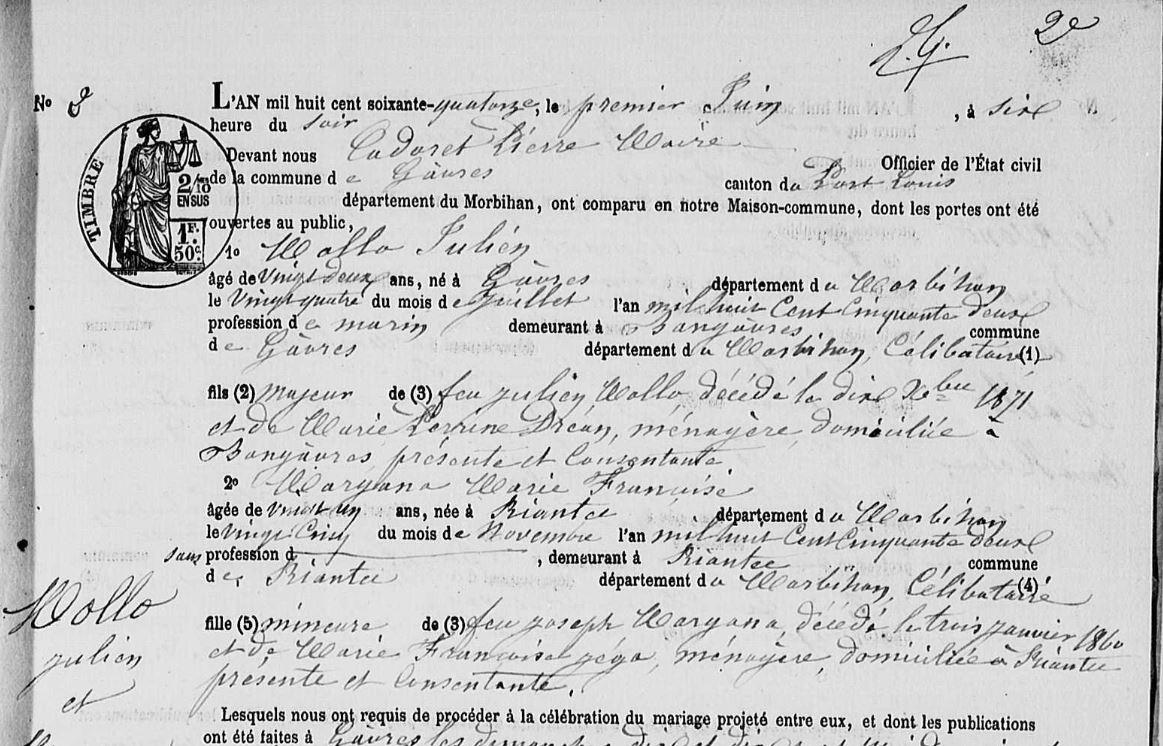 2e
No 3
L'AN mil huit cent soixante-quatorze, le premier Juin, à six
heure du soir
Devant nous Cadoret Pierre Maire Officier de l'État civil
de la commune de Gâvres canton du Port Louis
TIMBRE
2/10
EN SUS
1F.
50c.
département du Morbihan, ont comparu en notre Maison-commune, dont les portes ont été
ouvertes au public,
1o Mollo Julien
âgé de vingt deux ans, né à Gâvres département du Morbihan
le vingt quatre du mois de Juillet l'an mil huit Cent Cinquante deux
profession de marin demeurant à Bangâvres commune
de Gâvres département du Morbihan, Célibataire (1)
fils (2) majeur de (3) feu julien Mollo décédé le dix Xbre 1871
et de Marie Perrine Dréan, ménagère, domiciliée à
Bangâvres, présente et Consentante
2o Margana Marie Françoise
âgée de vingt un ans, née à Riantec département du Morbihan
le vingt Cinq du mois de Novembre l'an mil huit Cent Cinquante deux
sans profession d , demeurant à Riantec commune
de Riantec département du Morbihan, Célibataire (4)
fille (5) mineure de (3) feu joseph Margana, décédé le trois janvier 1860
et de Marie Françoise, ménagère, domiciliée à Riantec
présente et Consentante.
Mollo
julien
et
Lesquels nous ont requis de procéder à la célébration du mariage projeté entre eux, et dont les publications
ont été faites à Gâvres les dimanches